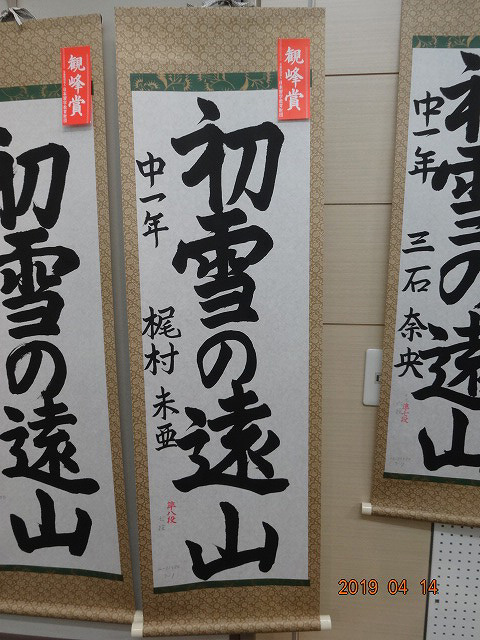 観峰賞
初雪の遠山
中一年
三石 奈央
観峰賞
初雪の遠山
中一年
梶村 未亜
準八段
初雪の遠山
2019 04 14